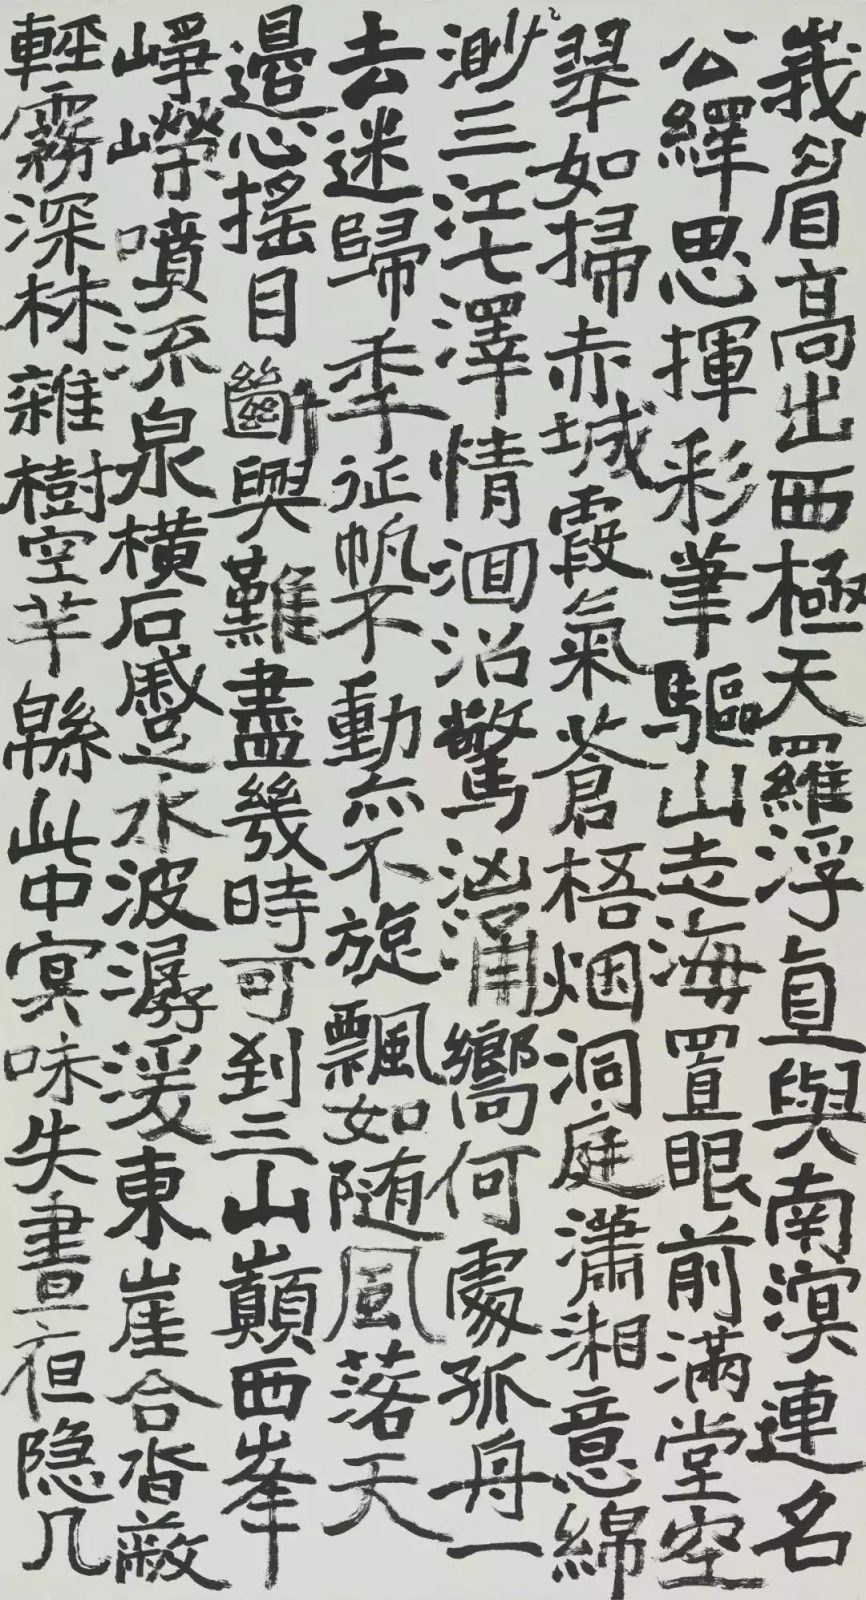 峩眉高出西極天羅浮直與南溟連名
公繹思揮彩筆驅山走海置眼前滿堂空
翠如掃赤城霞氣蒼梧烟洞庭瀟湘意綿
渺三江七澤情洄沿驚洶涌嚮何處孤舟一
去迷歸秊征帆不動亦不旋飄如随風落天
邉心搖目斷興難盡幾時可到三山巔西峯
崢嶸噴流泉橫石蹙水波潺湲東崖合沓蔽
輕霧深林雜樹空芊緜此中冥昧失晝夜隐几